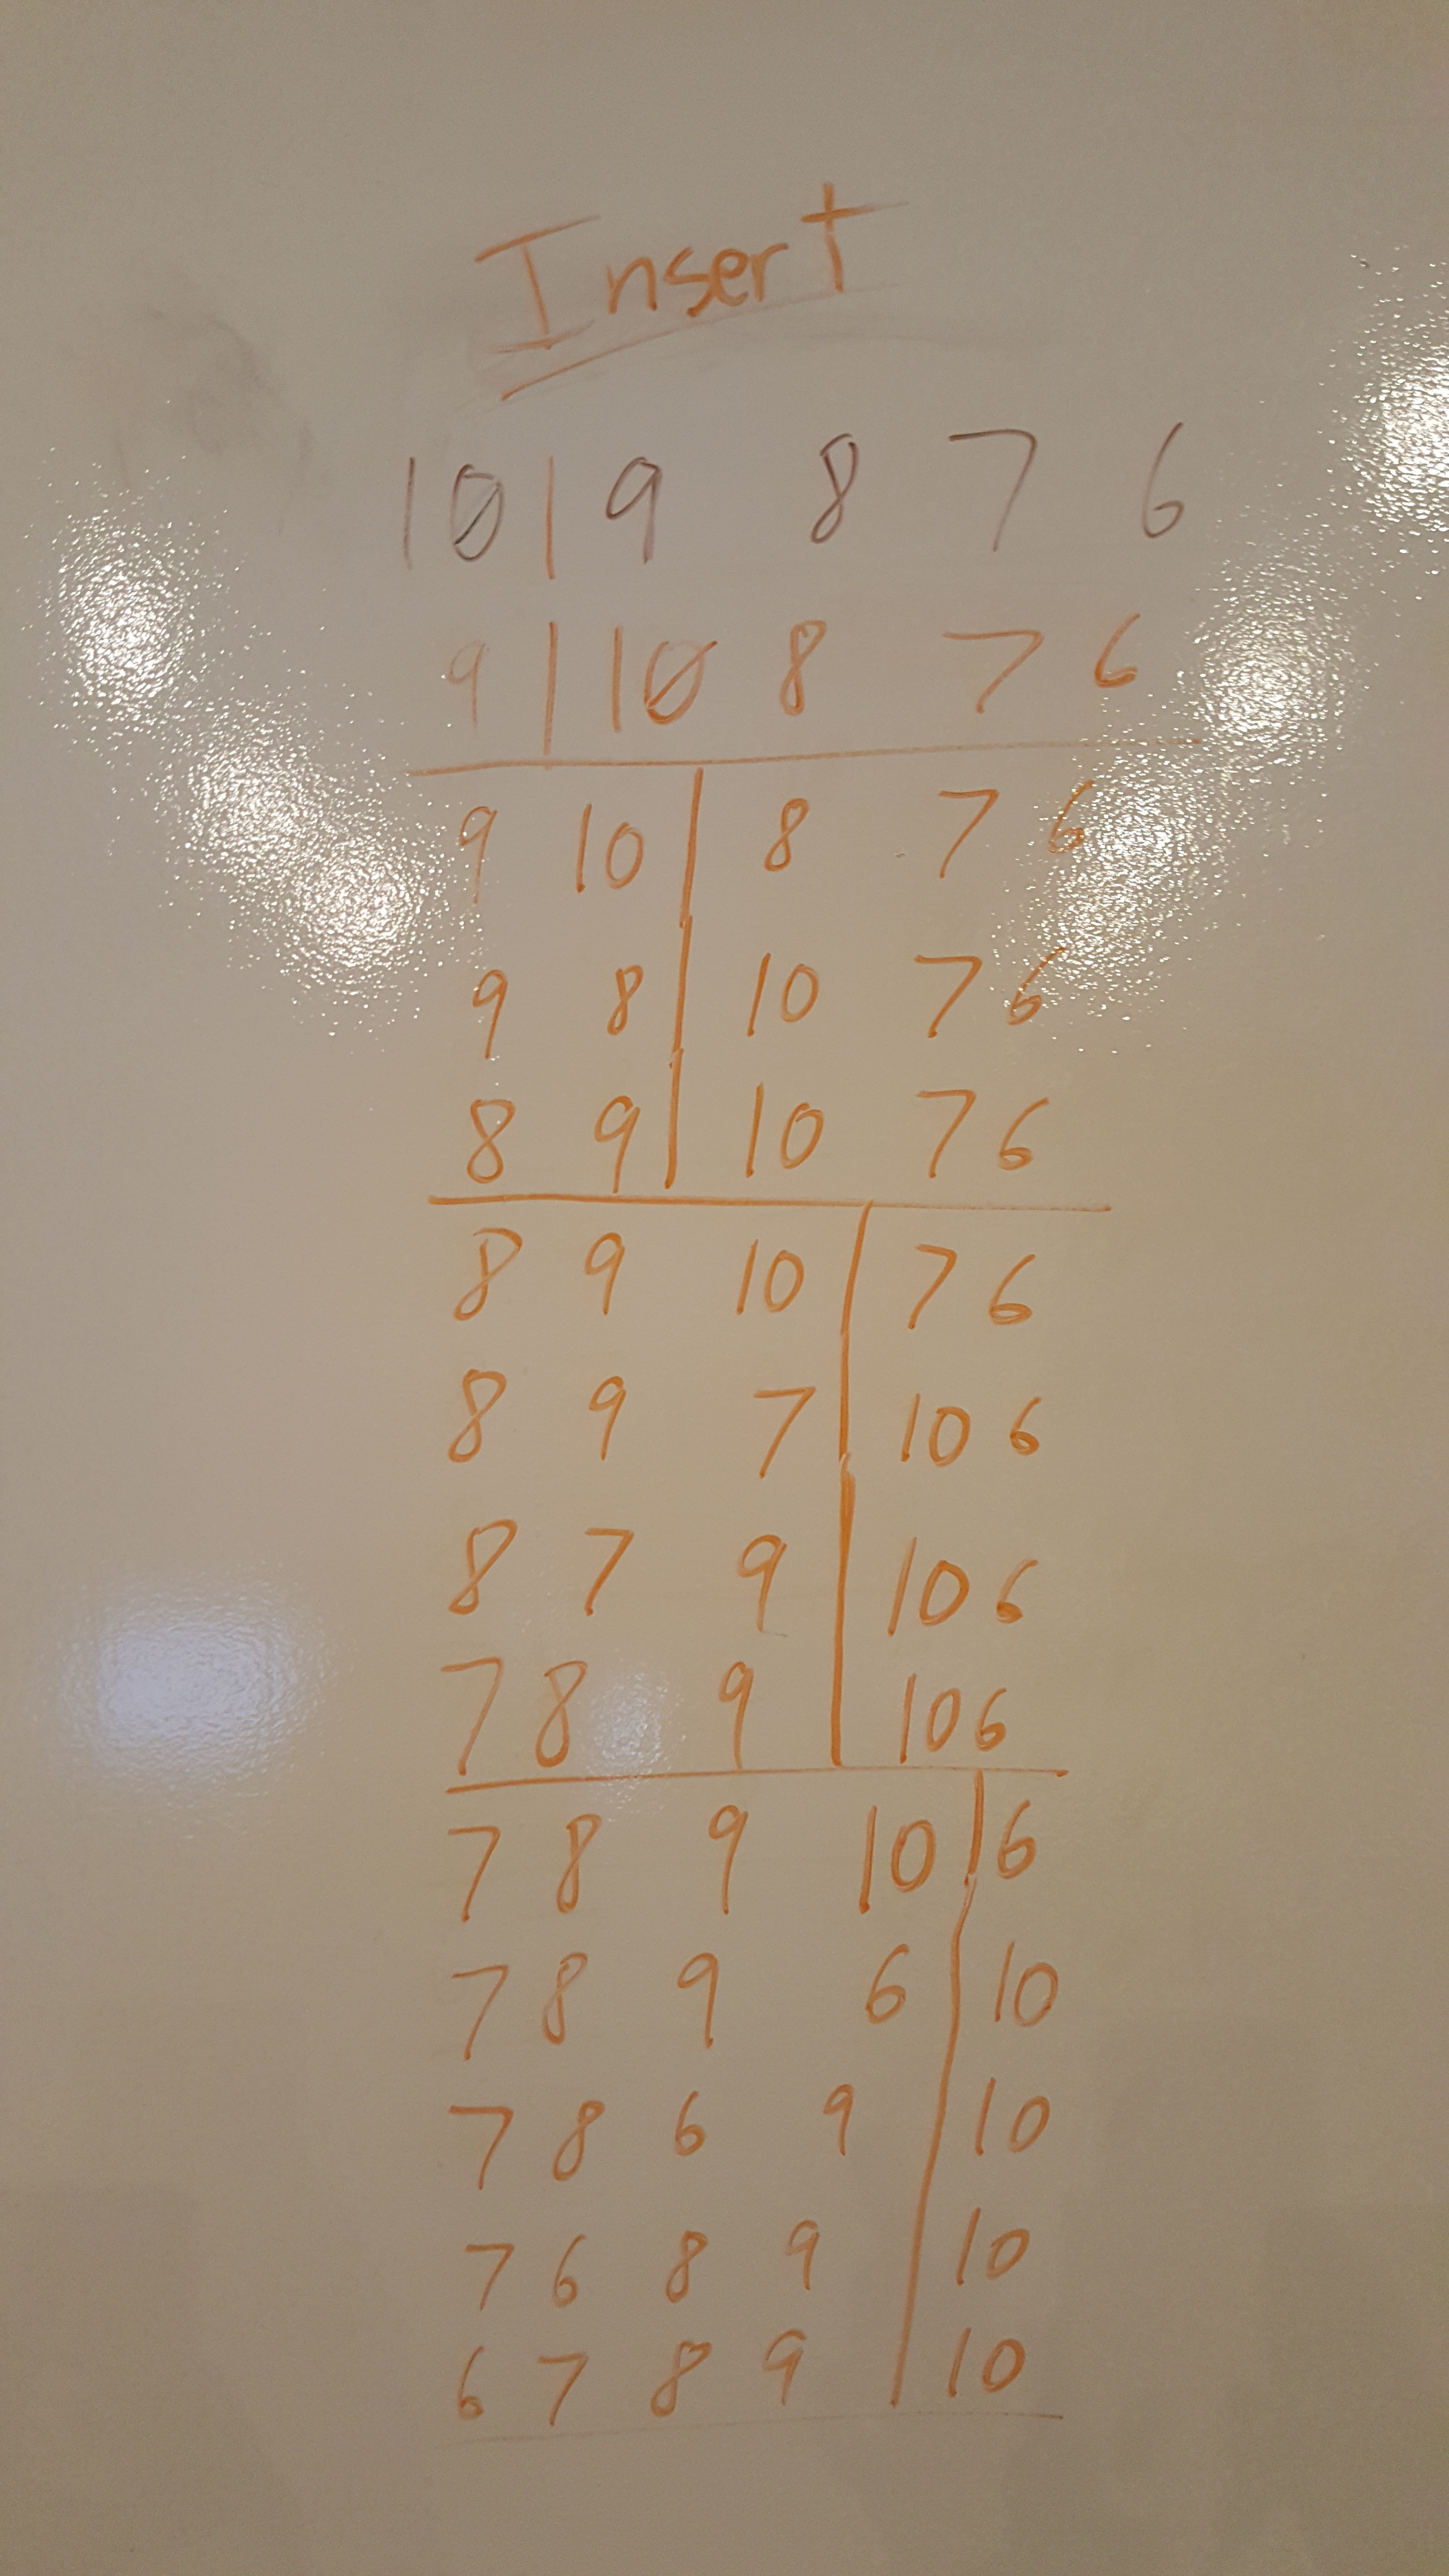 Insert
10 | 9 8 7 6
9 | 10 8 7 6
9 10 | 8 7 6
9 8 | 10 7 6
8 9 | 10 7 6
8 9 10 | 7 6
8 9 7 | 10 6
8 7 9 | 10 6
7 8 9 | 10 6
7 8 9 10 | 6
7 8 9 6 | 10
7 8 6 9 | 10
7 6 8 9 | 10
6 7 8 9 | 10